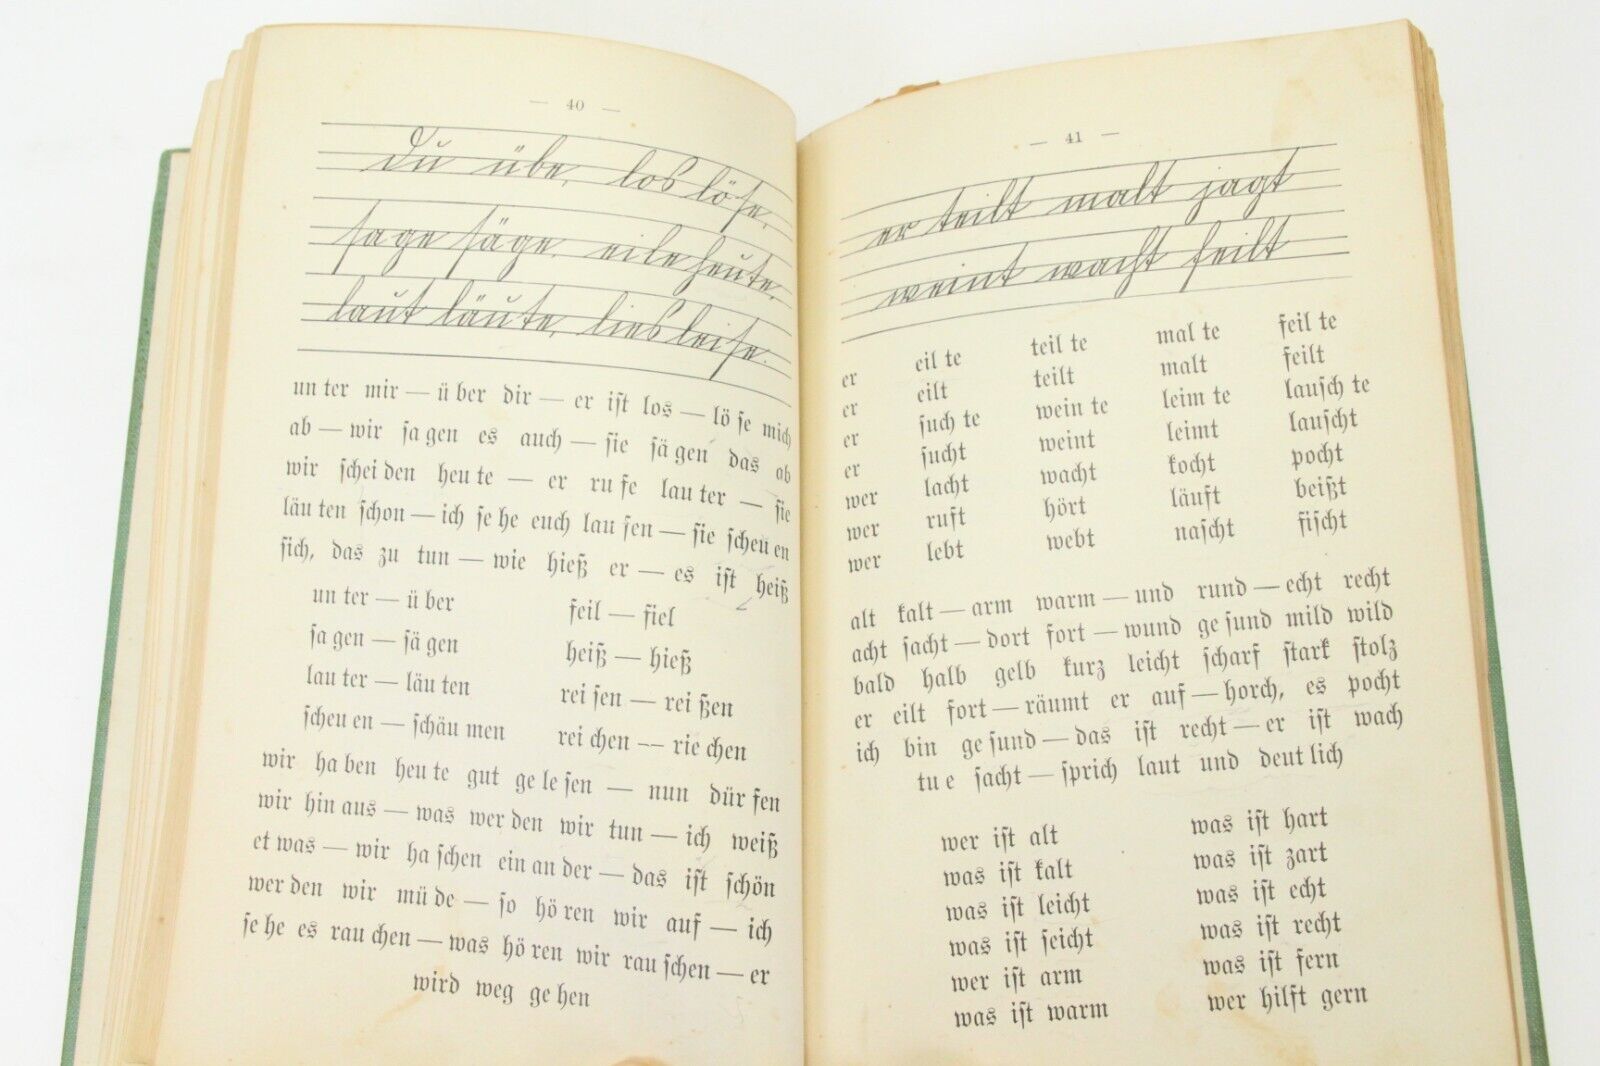 — 40 —
du übe, los löse,
sage säge, eile heute,
laut läute, lies leise.
un ter mir — ü ber dir — er iſt los — lö ſe mich
ab — wir ſa gen es auch — ſie ſä gen das ab
wir ſchei den heu te — er ru fe lau ter — ſie
läu ten ſchon — ich ſe he euch lau fen — ſie ſcheu en
ſich, das zu tun — wie hieß er — es iſt heiß
un ter — ü ber feil — fiel
ſa gen — ſä gen heiß — hieß
lau ter — läu ten rei ſen — rei ßen
ſcheu en — ſchäu men rei chen — rie chen
wir ha ben heu te gut ge le ſen — nun dür fen
wir hin aus — was wer den wir tun — ich weiß
et was — wir ha ſchen ein an der — das iſt ſchön
wer den wir mü de — ſo hö ren wir auf — ich
ſe he es rau chen — was hö ren wir rau ſchen — er
wird weg ge hen
— 41 —
er teilt malt jagt
weint wacht feilt
er eil te teil te mal te feil te
er eilt teilt malt feilt
er ſuch te wein te leim te lauſch te
er ſucht weint leimt lauſcht
wer lacht wacht kocht pocht
wer ruft hört läuft beißt
wer lebt webt naſcht fiſcht
alt kalt — arm warm — und rund — echt recht
acht ſacht — dort fort — wund ge ſund mild wild
bald halb gelb kurz leicht ſcharf ſtark ſtolz
er eilt fort — räumt er auf — horch, es pocht
ich bin ge ſund — das iſt recht — er iſt wach
tu e ſacht — ſprich laut und deut lich
wer iſt alt was iſt hart
was iſt kalt was iſt zart
was iſt leicht was iſt echt
was iſt ſeicht was iſt recht
wer iſt arm was iſt fern
was iſt warm wer hilft gern